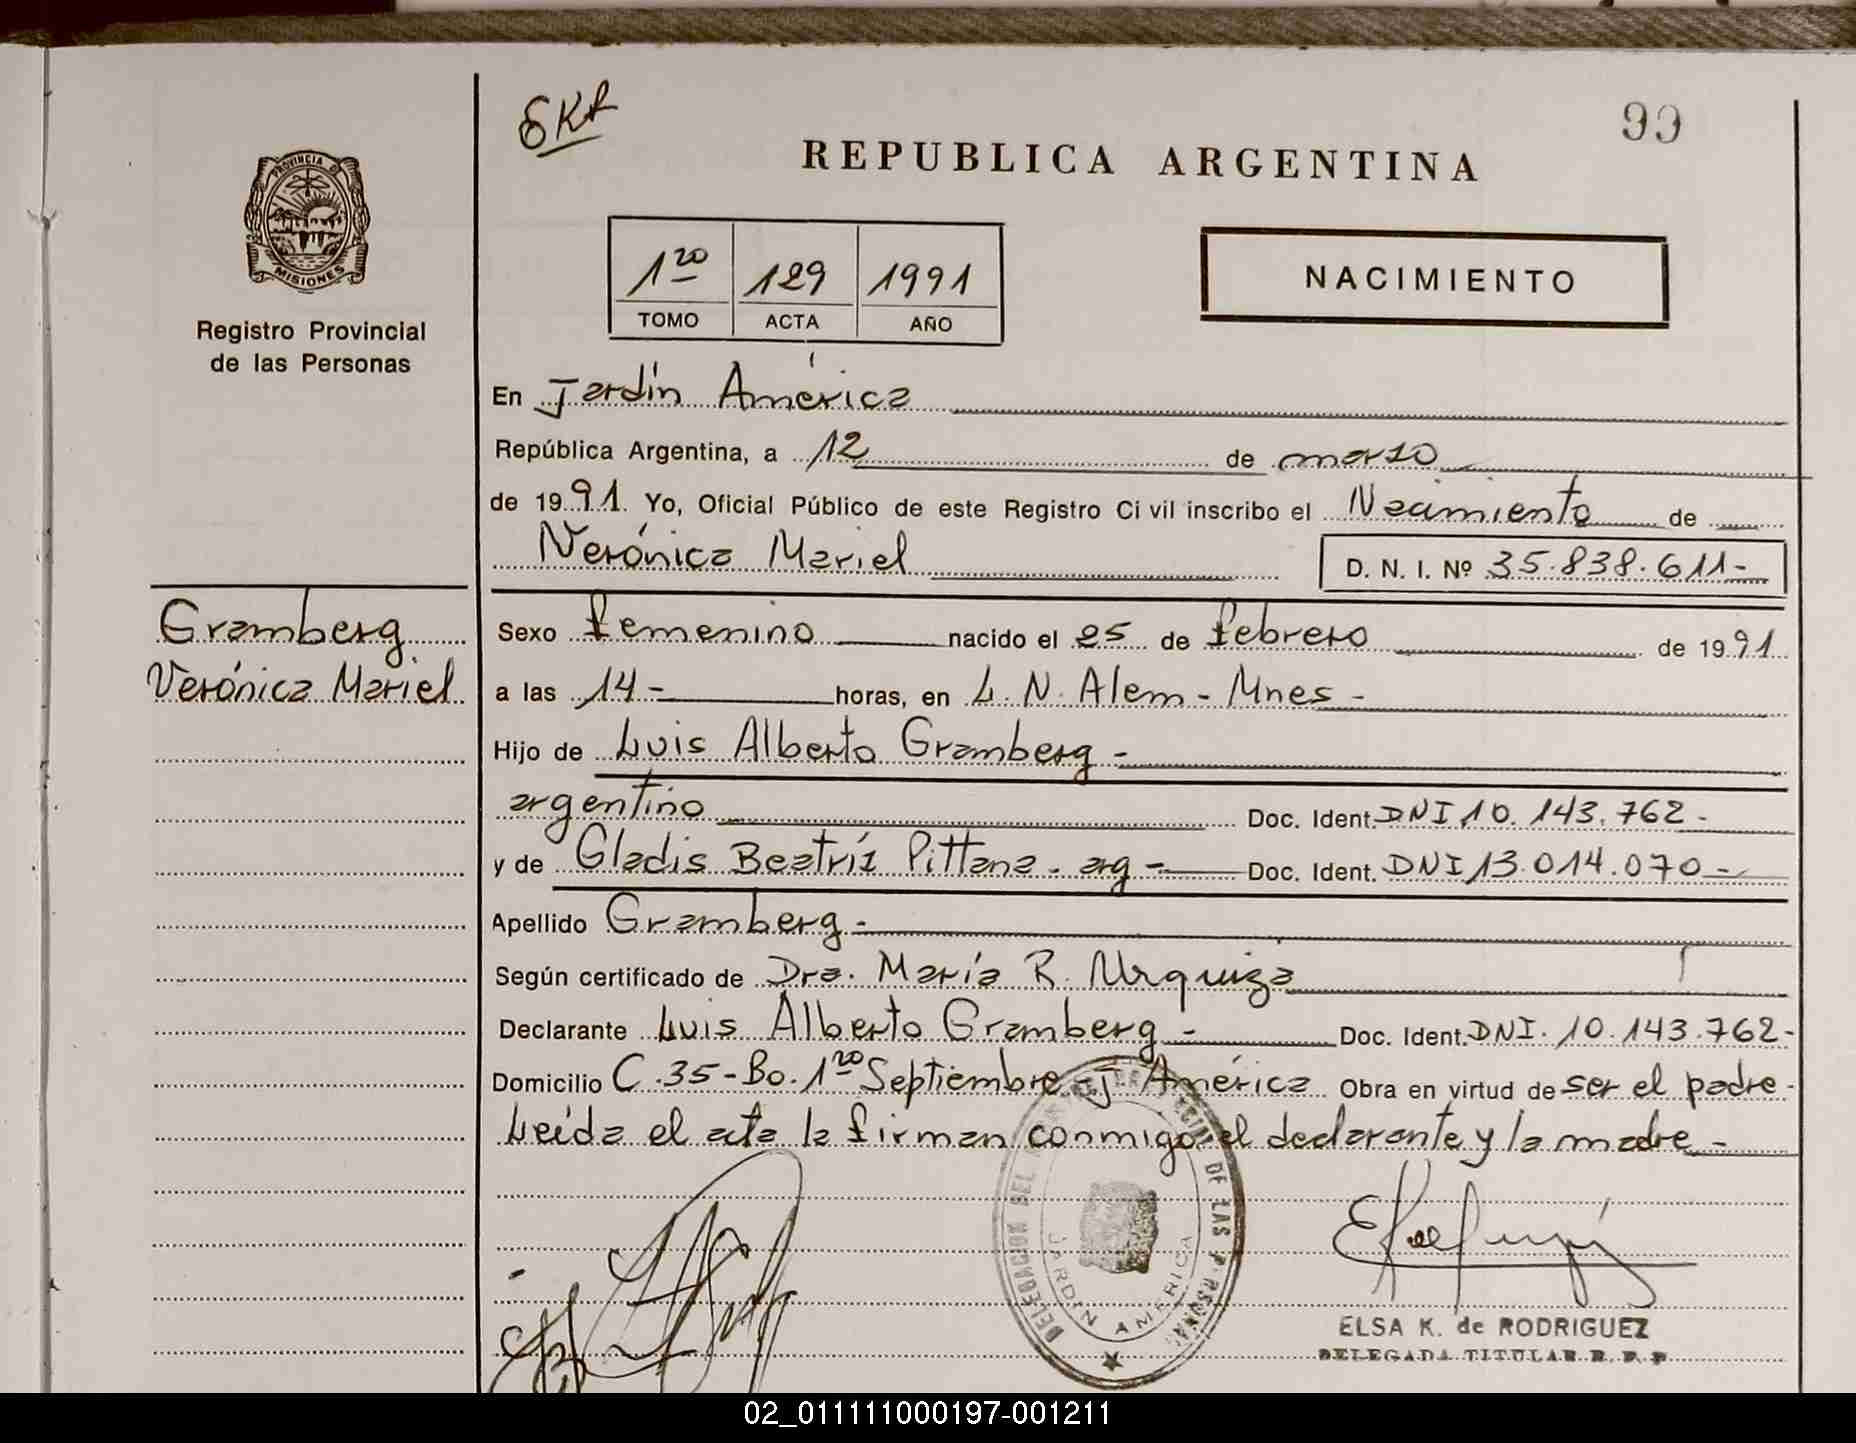 EKR
99
REPUBLICA ARGENTINA
PROVINCIA DE
MISIONES
Registro Provincial
de las Personas
1ro 129 1991
TOMO ACTA AÑO
NACIMIENTO
En Jardín América
República Argentina, a 12 de marzo
de 1991. Yo, Oficial Público de este Registro Civil inscribo el Nacimiento de
Verónica Mariel D. N. I. Nº 35.838.611-
Gramberg
Verónica Mariel
Sexo femenino nacido el 25 de febrero de 1991
a las 14- horas, en L. N. Alem - Mnes -
Hijo de Luis Alberto Gramberg -
argentino Doc. Ident. DNI 10.143.762-
y de Gladis Beatríz Pittana. arg - Doc. Ident. DNI 13.014.070-
Apellido Gramberg -
Según certificado de Dra. María R. Urquiza
Declarante Luis Alberto Gramberg - Doc. Ident. DNI. 10.143.762-
Domicilio C.35-Bo. 1ro Septiembre - J América Obra en virtud de ser el padre-
Leída el acta la firman conmigo el declarante y la madre -
DELEGACION DEL DE LAS PERSONAS
JARDIN AMERICA
ELSA K. de RODRIGUEZ
DELEGADA TITULAR R. P. P
02_011111000197-001211